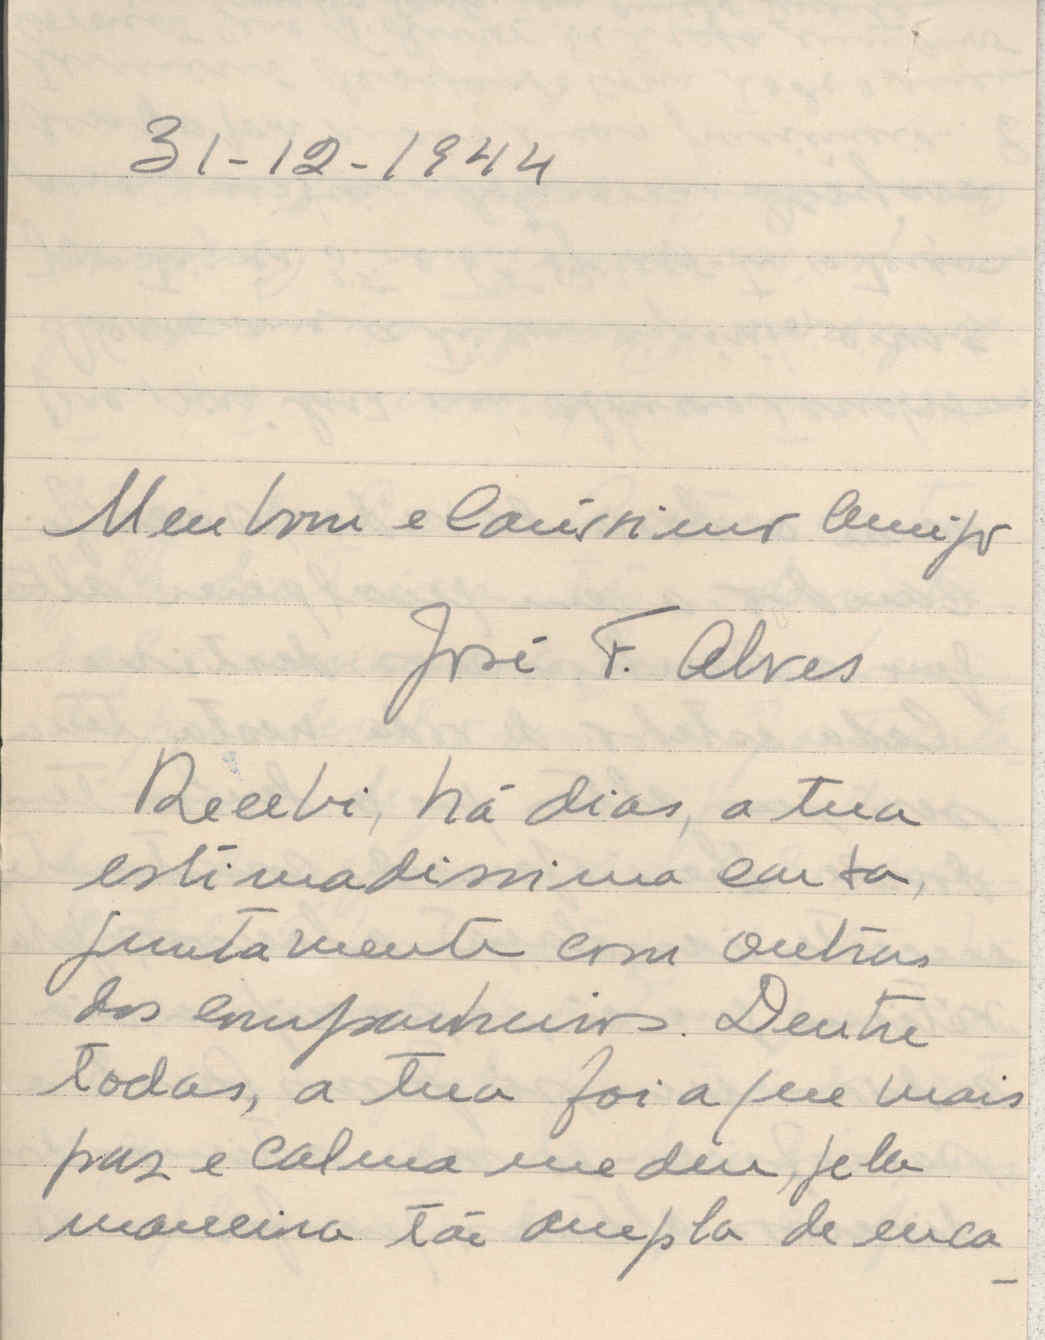 31-12-1944
Meu bom e Caríssimo Amigo
José F. Alves
Recebi, há dias, a tua
estimadissima carta,
juntamente com outras
dos companheiros. Dentre
todas, a tua foi a que mais
paz e calma me deu, pela
maneira tão ampla de enca
-